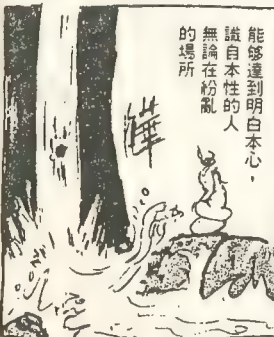 能够達到明白本心，
識自本性的人
無論在紛亂
的場所